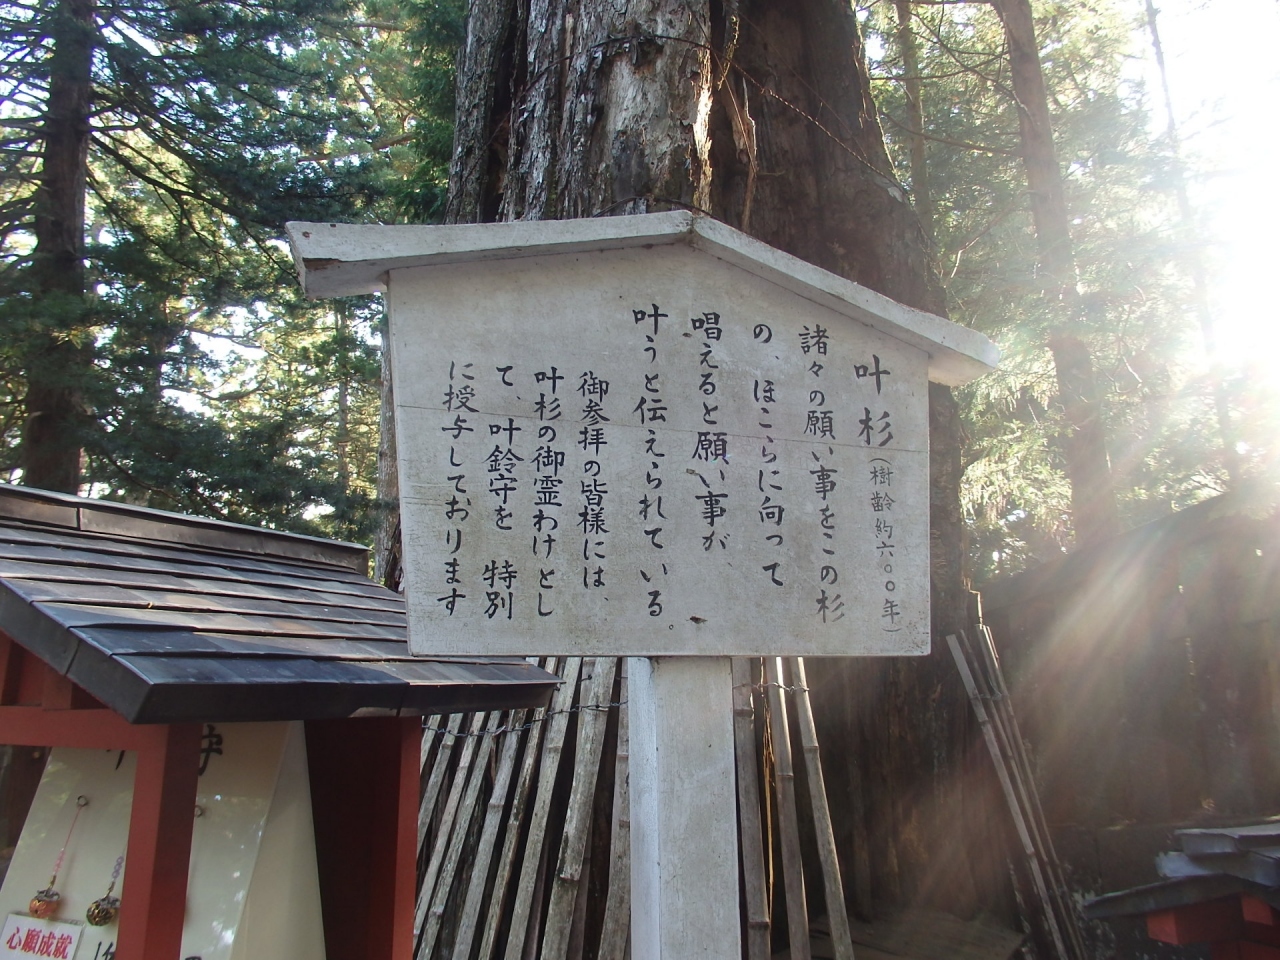 叶杉(樹齢約六〇〇年)
諸々の願い事をこの杉
の、ほこらに向って
唱えると願い事が、
叶うと伝えられている。
御参拝の皆様には、
叶杉の御霊わけとし
て、叶鈴守を 特別
に授与しております
守
心願成就